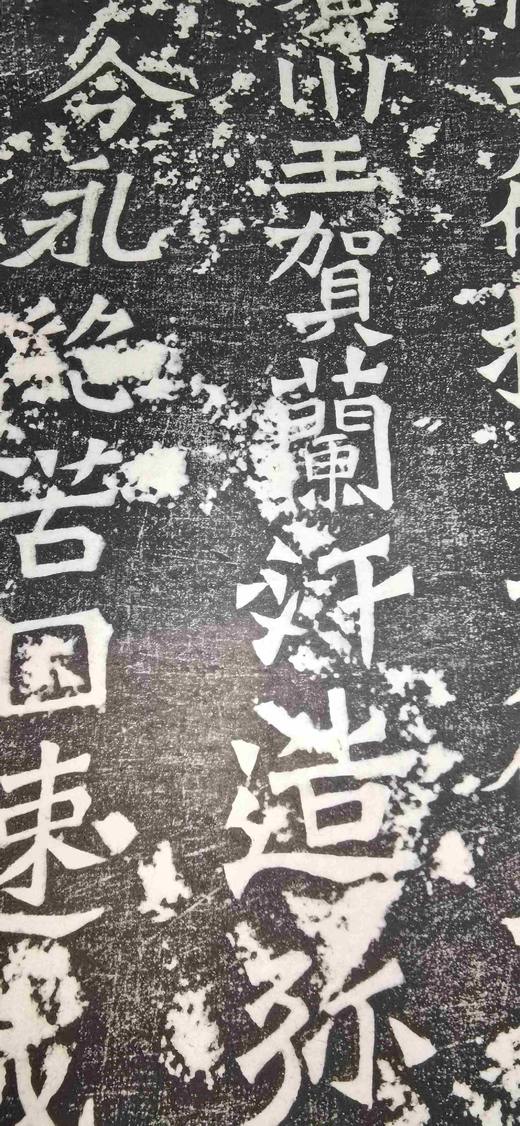 川王賀蘭汗造弥
令永絕苦因速